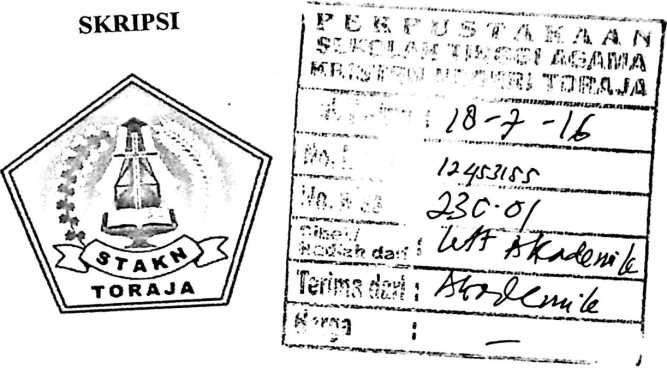 SKRIPSI
STAKN
TORAJA
PERPUSTAKAAN
SEKOLAH TINGGI AGAMA
KRISTEN NEGERI TORAJA
: 18-7-16
No. 12453155
No. 230.01
dari : Akademik
Terima dari : Akademik
Harga : —